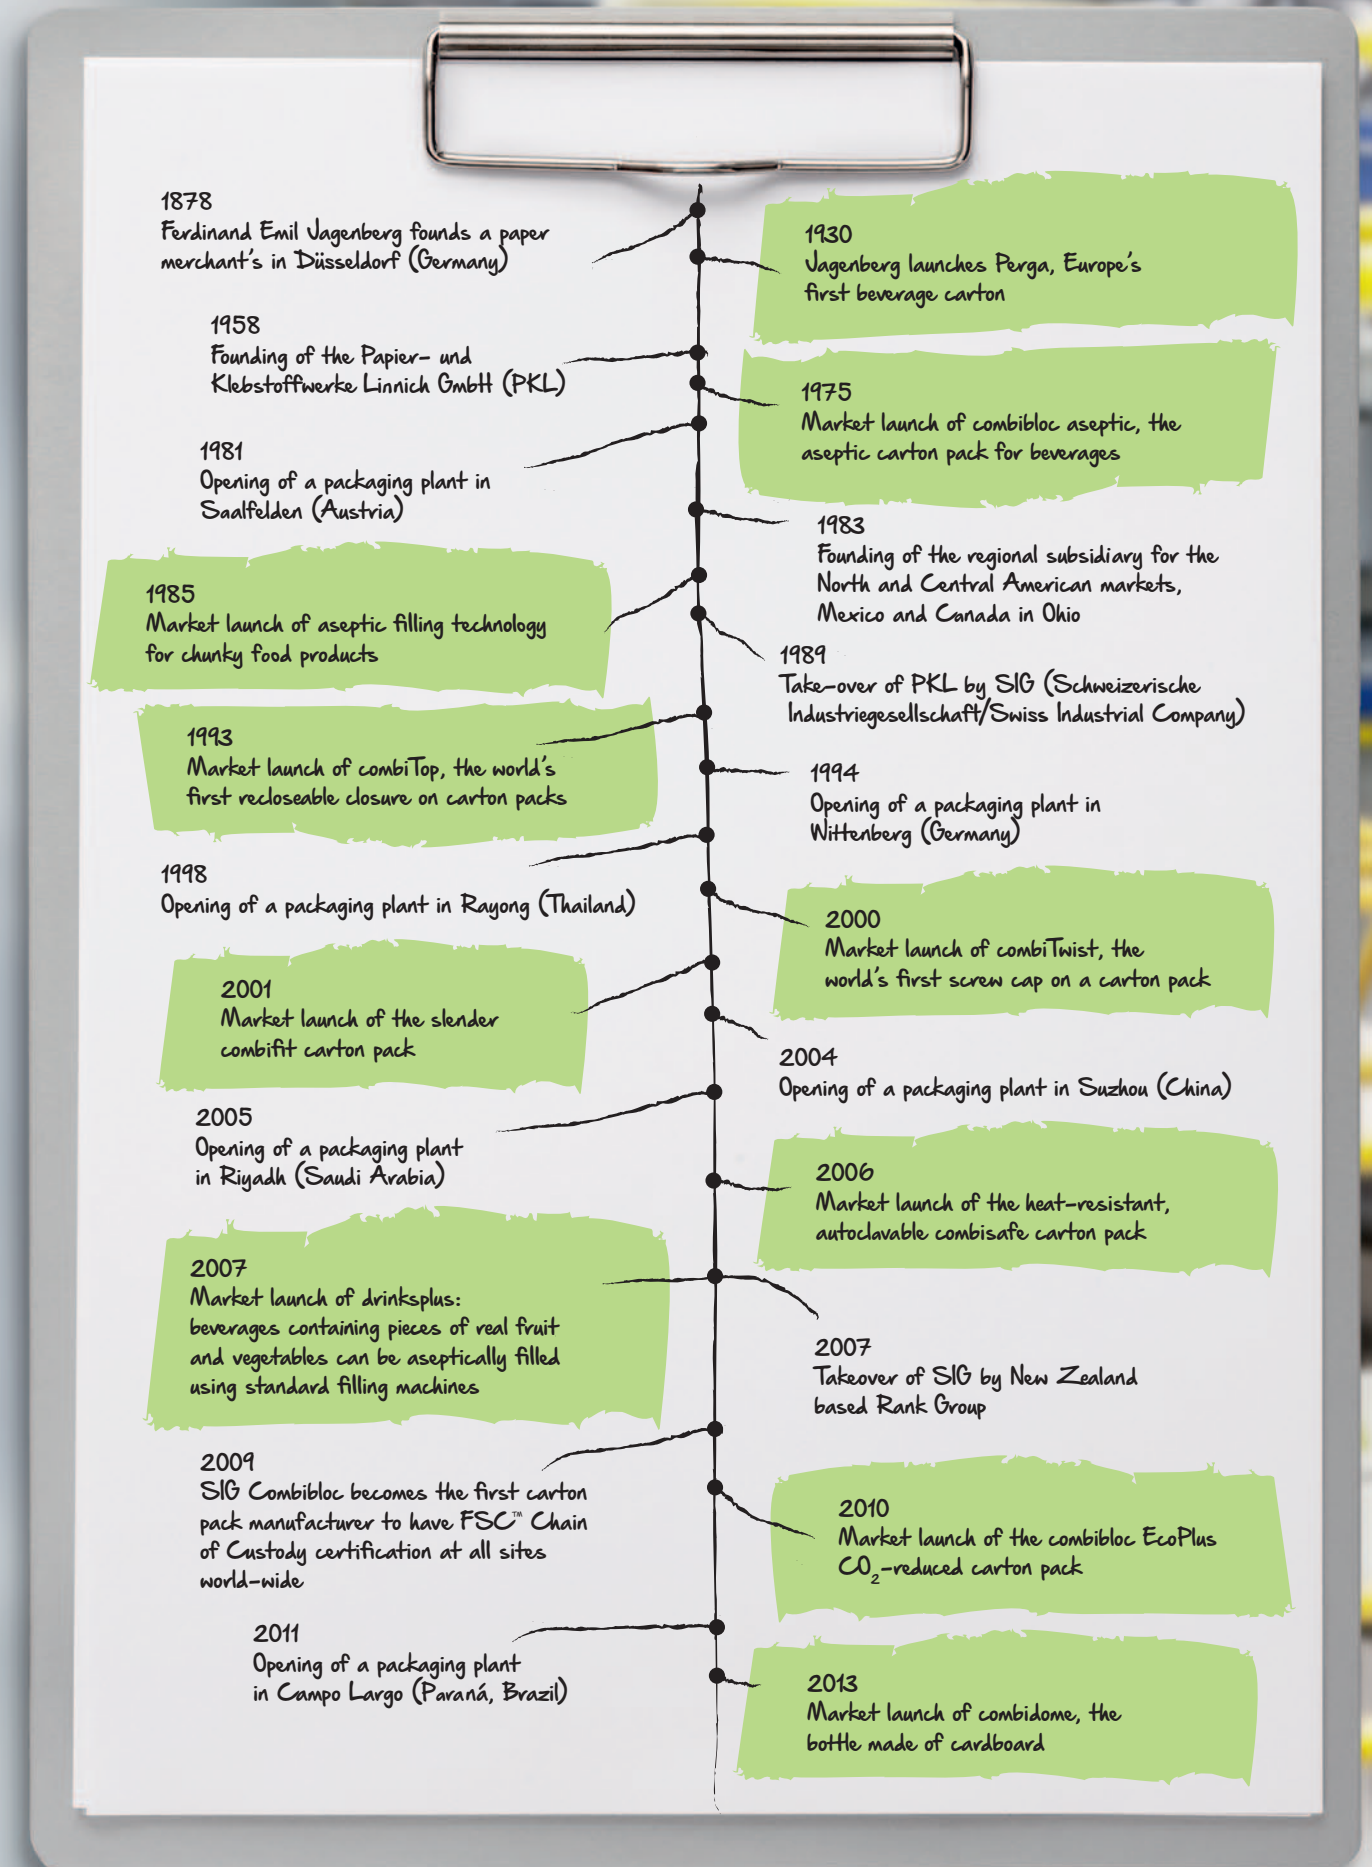 1878
Ferdinand Emil Jagenberg founds a paper
merchant's in Düsseldorf (Germany)
1930
Jagenberg launches Perga, Europe's
first beverage carton
1958
Founding of the Papier- und
Klebstoffwerke Linnich GmbH (PKL)
1975
Market launch of combibloc aseptic, the
aseptic carton pack for beverages
1981
Opening of a packaging plant in
Saalfelden (Austria)
1983
Founding of the regional subsidiary for the
North and Central American markets,
Mexico and Canada in Ohio
1985
Market launch of aseptic filling technology
for chunky food products
1989
Take-over of PKL by SIG (Schweizerische
Industriegesellschaft/Swiss Industrial Company)
1993
Market launch of combiTop, the world's
first recloseable closure on carton packs
1994
Opening of a packaging plant in
Wittenberg (Germany)
1998
Opening of a packaging plant in Rayong (Thailand)
2000
Market launch of combiTwist, the
world's first screw cap on a carton pack
2001
Market launch of the slender
combifit carton pack
2004
Opening of a packaging plant in Suzhou (China)
2005
Opening of a packaging plant
in Riyadh (Saudi Arabia)
2006
Market launch of the heat-resistant,
autoclavable combisafe carton pack
2007
Market launch of drinksplus:
beverages containing pieces of real fruit
and vegetables can be aseptically filled
using standard filling machines
2007
Takeover of SIG by New Zealand
based Rank Group
2009
SIG Combibloc becomes the first carton
pack manufacturer to have FSC™ Chain
of Custody certification at all sites
world-wide
2010
Market launch of the combibloc EcoPlus
CO₂-reduced carton pack
2011
Opening of a packaging plant
in Campo Largo (Paraná, Brazil)
2013
Market launch of combidome, the
bottle made of cardboard